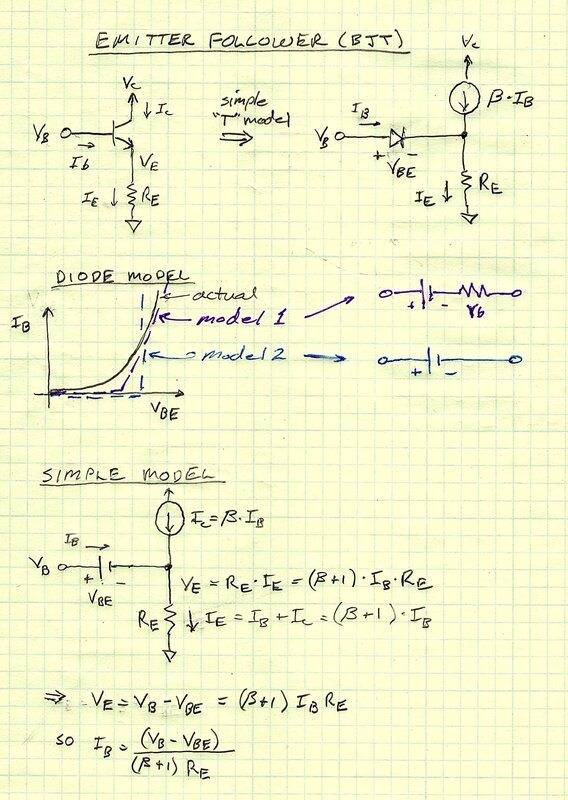 EMITTER FOLLOWER (BJT)
Vc
Ic
VB
Ib
VE
IE
RE
simple
"T" model
⇒
Vc
β·IB
IB
VB
+ VBE -
IE
RE
DIODE MODEL
IB
actual
model 1
model 2
VBE
+ - rb
+ -
SIMPLE MODEL
Ic = β·IB
IB
VB
+ -
VBE
VE = RE·IE = (β+1)·IB·RE
RE
IE = IB + Ic = (β+1)·IB
⇒ VE = VB - VBE = (β+1) IB RE
so IB = (VB - VBE)
(β+1) RE